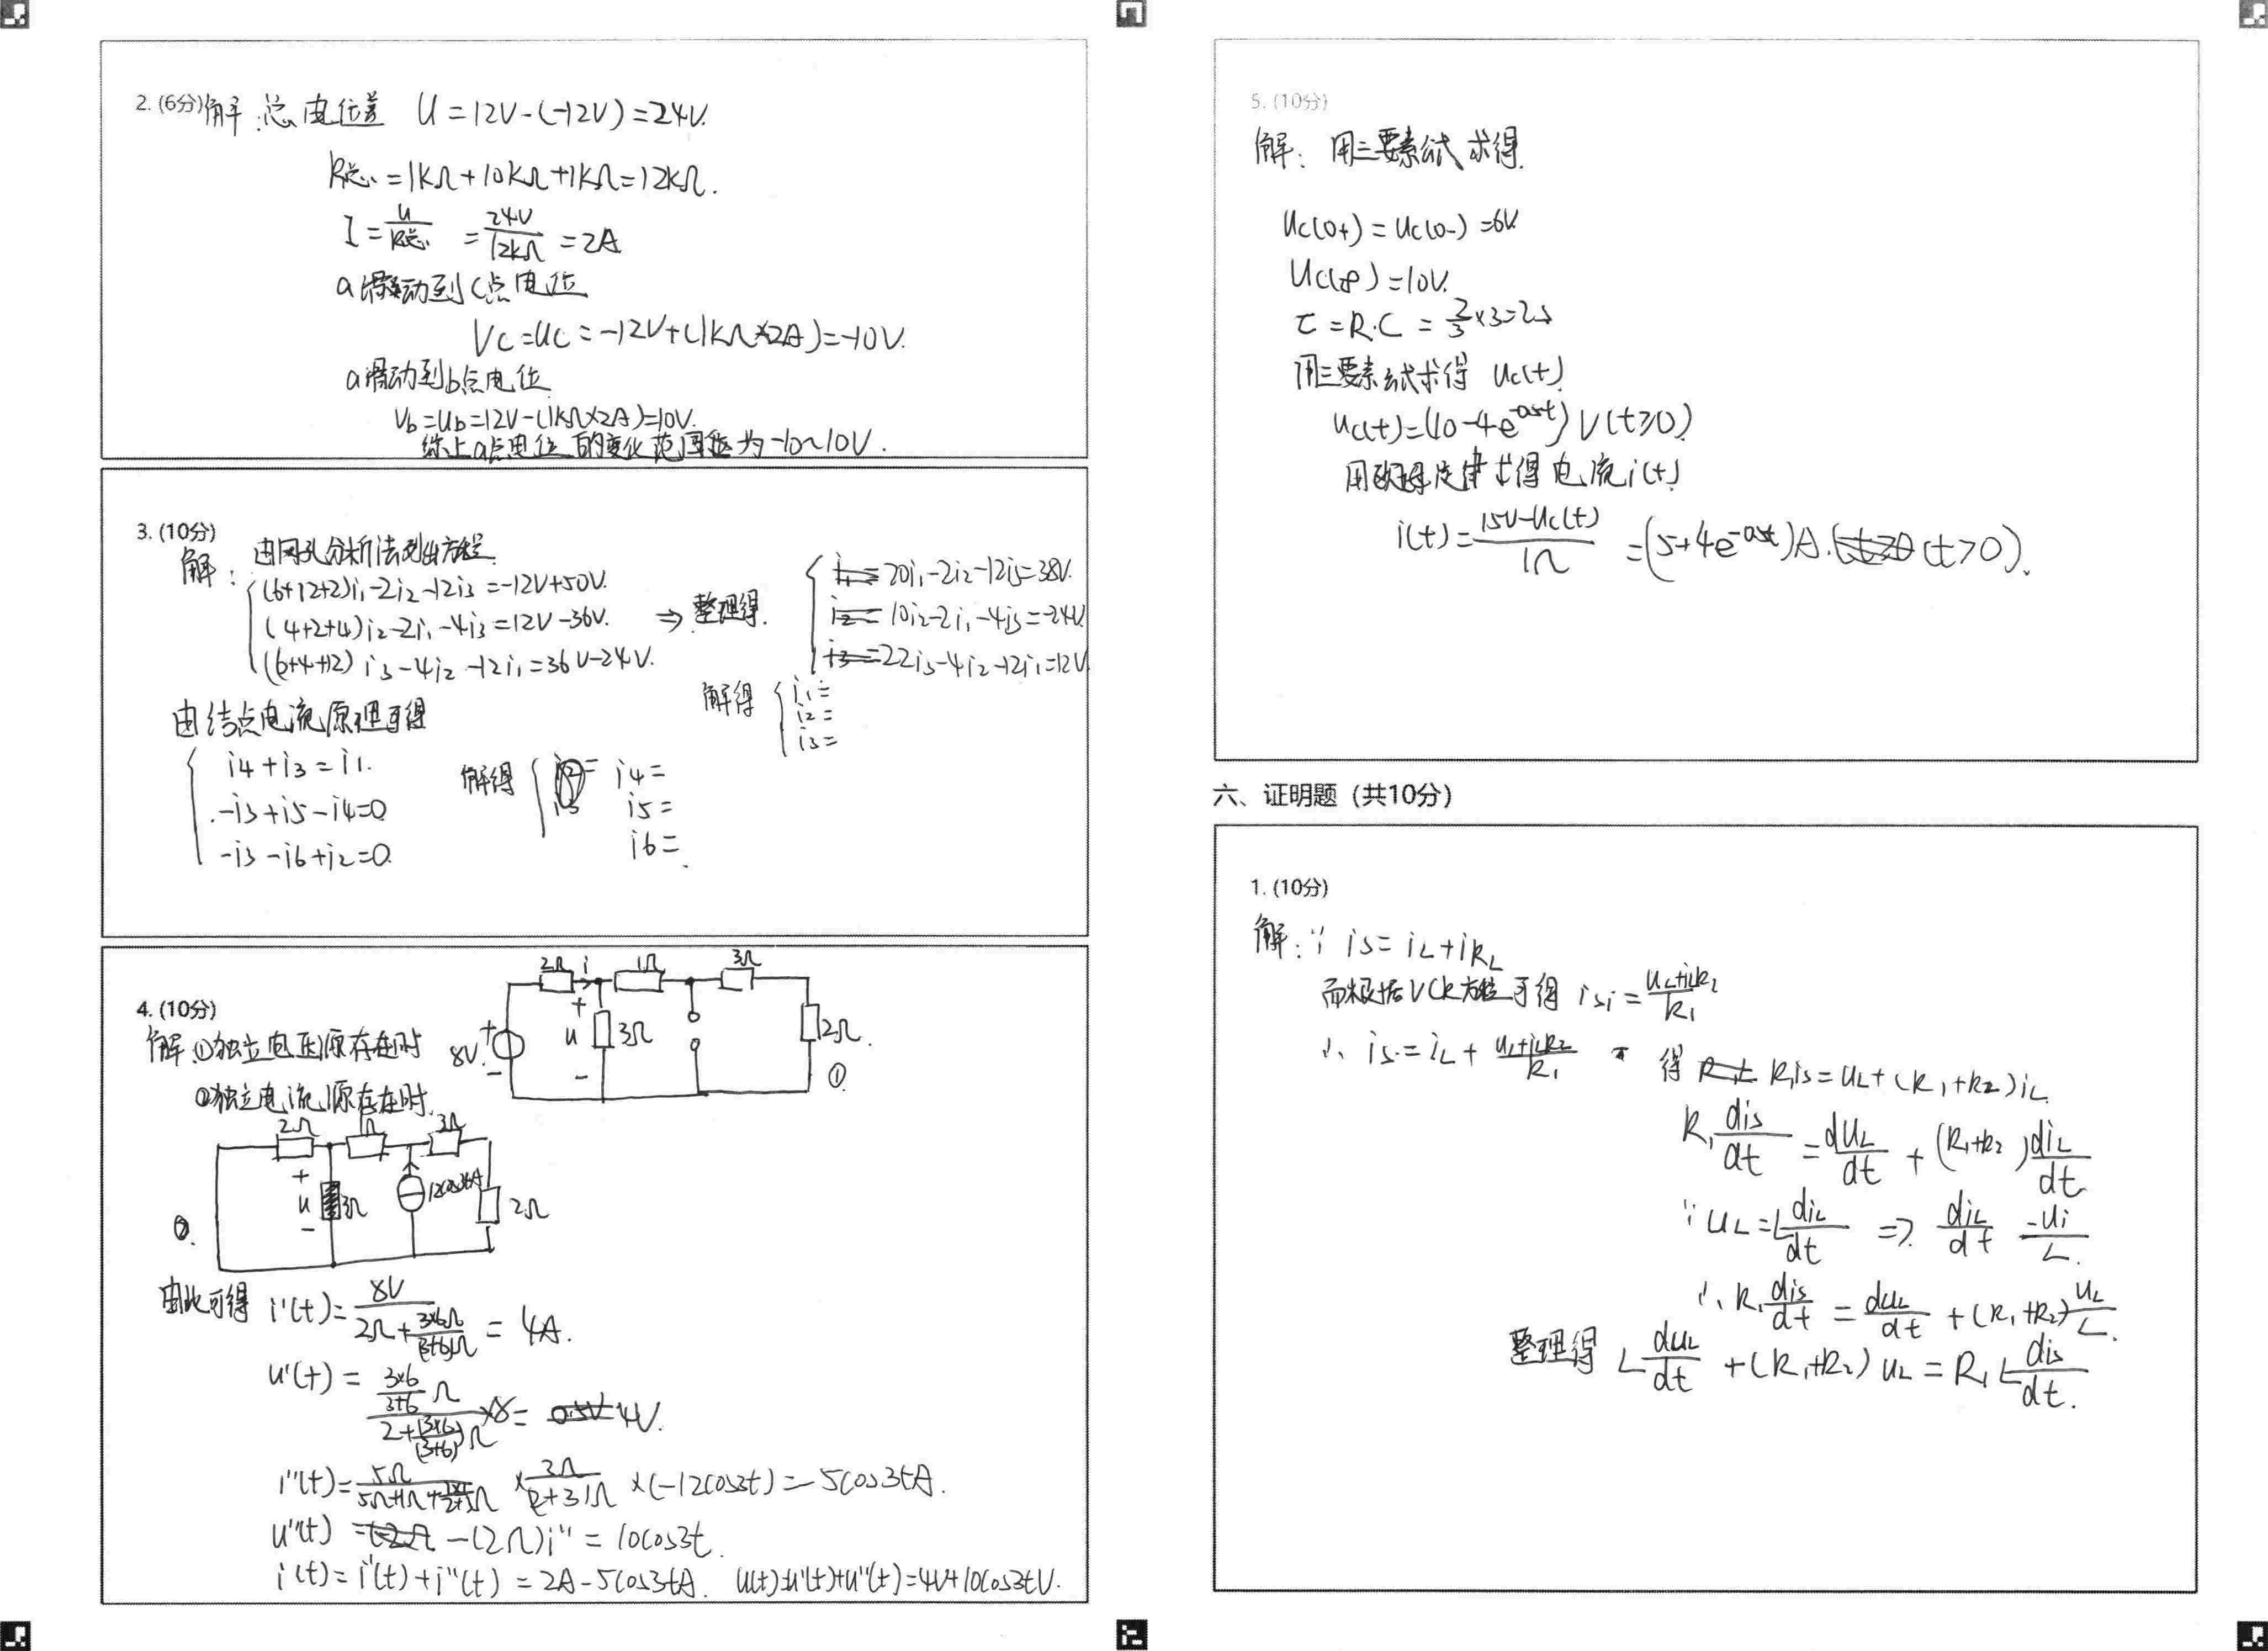 2. (6分) 解:总电位差 U=12V-(-12V)=24V.
R总=1kΩ+10kΩ+1kΩ=12kΩ.
I=U/R总=24V/12kΩ=2A
a滑动到C点电位
Vc=Uc=-12V+(1kΩ×2A)=-10V.
a滑动到b点电位
Vb=Ub=12V-(1kΩ×2A)=10V.
综上a点电位的变化范围为-10~10V.
3. (10分)
解: 由网孔分析法列出方程
(6+12+2)i₁-2i₂-12i₃=-12V+50V.
(4+2+4)i₂-2i₁-4i₃=12V-36V.
(6+4+12)i₃-4i₂-12i₁=36V-24V.
⇒整理得.
20i₁-2i₂-12i₃=38V.
10i₂-2i₁-4i₃=-24V
22i₃-4i₂-12i₁=12V
解得
i₁=
i₂=
i₃=
由结点电流原理可得
i₄+i₃=i₁.
-i₃+i₅-i₄=0
-i₃-i₆+i₂=0.
解得
i₄=
i₅=
i₆=
4. (10分)
2Ω i 1Ω 3Ω
8V + - + u - 3Ω 2Ω ①
解:①独立电压源存在时
②独立电流源存在时.
2Ω 1Ω 3Ω
+ u - 3Ω 12cos3tA 2Ω
②.
由此可得 i'(t)=8V/(2Ω+(3×6Ω)/(3+6)Ω)=4A.
u'(t)=((3×6)/(3+6)Ω)/(2+(3×6)/(3+6)Ω)×8=4V.
i''(t)=5Ω/(5Ω+1Ω+Ω)×3Ω/(2+3)Ω×(-12cos3t)=-5cos3tA.
u''(t)=-(2Ω)i''=10cos3t.
i(t)=i'(t)+i''(t)=2A-5cos3tA. u(t)=u'(t)+u''(t)=4V+10cos3tV.
5. (10分)
解: 用三要素公式求得.
Uc(0+)=Uc(0-)=6V
Uc(∞)=10V.
τ=R·C=2/3×3=2s
用三要素公式求得 Uc(t).
Uc(t)=(10-4e^-0.5t)V(t≥0)
用欧姆定律求得电流i(t)
i(t)=(15V-Uc(t))/1Ω=(5+4e^-0.5t)A.(t>0).
六、证明题（共10分）
1. (10分)
解:∵ is=iL+iRL
而根据VCR方程可得 isi=(uL+iLR₂)/R₁
∴ is=iL+(uL+iLR₂)/R₁ 得 R₁is=uL+(R₁+R₂)iL.
R₁dis/dt=duL/dt+(R₁+R₂)diL/dt
∵ uL=LdiL/dt ⇒ diL/dt=ui/L.
∴ R₁dis/dt=duL/dt+(R₁+R₂)uL/L.
整理得 LduL/dt+(R₁+R₂)uL=R₁Ldis/dt.